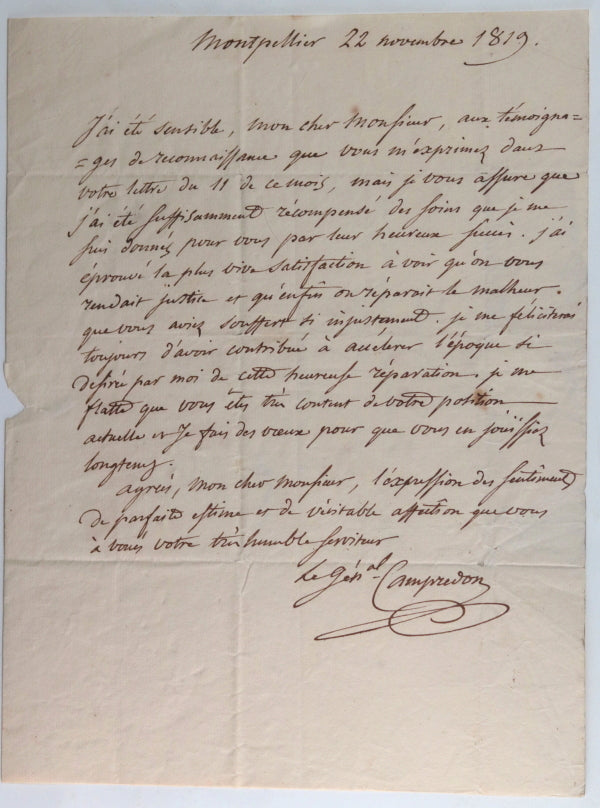 Montpellier 22 novembre 1819.
J'ai été sensible, mon cher Monsieur, aux témoigna=
=ges de reconnaissance que vous m'exprimez dans
votre lettre du 11 de ce mois, mais je vous assure que
j'ai été suffisamment récompensé des soins que je me
suis donnez pour vous par leur heureux succès. j'ai
éprouvé la plus vive satisfaction à voir qu'on vous
rendait justice et qu'enfin on réparait le malheur.
que vous aviez souffert si injustement. je me féliciterai
toujours d'avoir contribué à accélérer l'époque si
desirée par moi de cette heureuse réparation. je me
flatte que vous êtes très content de votre position
actuelle et je fais des vœux pour que vous en jouissiez
longtems.
agréés, mon cher Monsieur, l'expression des sentiments
de parfaite estime et de véritable affection que vous
à voués votre très humble serviteur
Le Génal Campredon